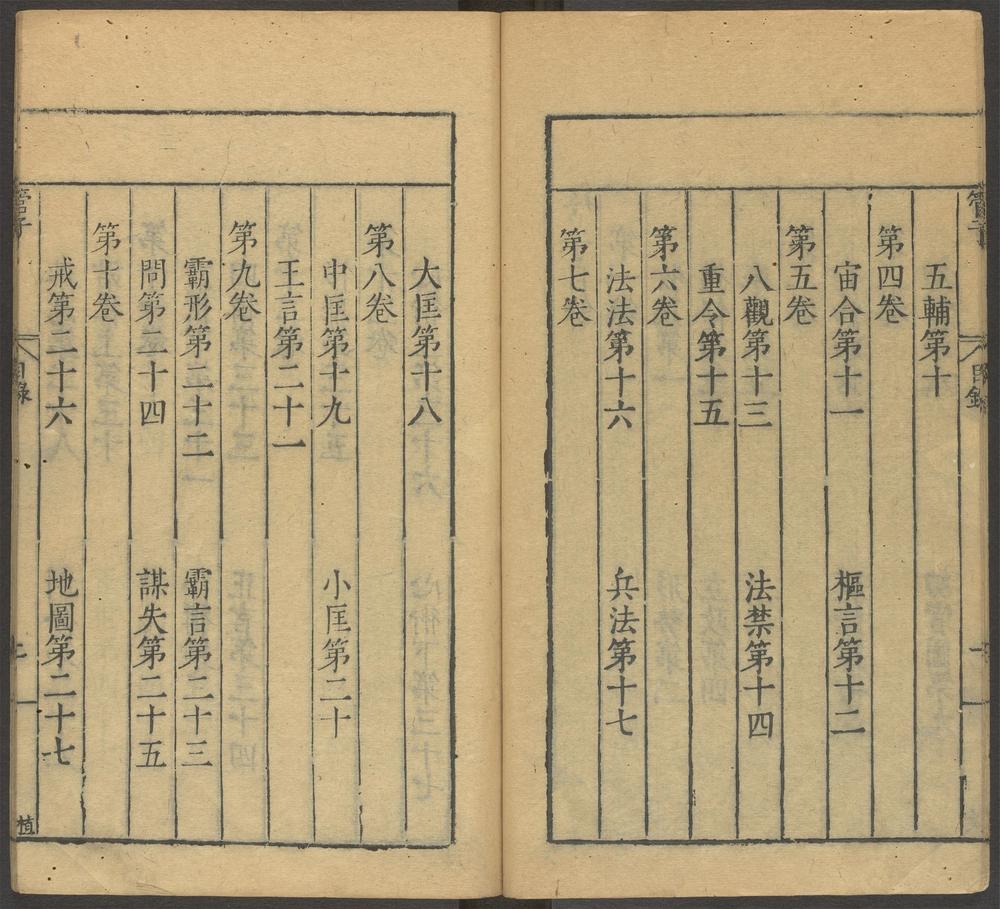 管子
目錄
五輔第十
第四卷
宙合第十一 樞言第十二
第五卷
八觀第十三 法禁第十四
重令第十五
第六卷
法法第十六 兵法第十七
第七卷
大匡第十八
第八卷
中匡第十九 小匡第二十
王言第二十一
第九卷
霸形第二十二 霸言第二十三
問第二十四 謀失第二十五
第十卷
戒第二十六 地圖第二十七
管子
目錄
植